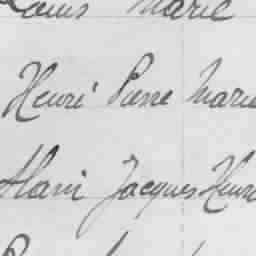 Louis Marie
Henri Pierre Marie
Alain Jacques Henri